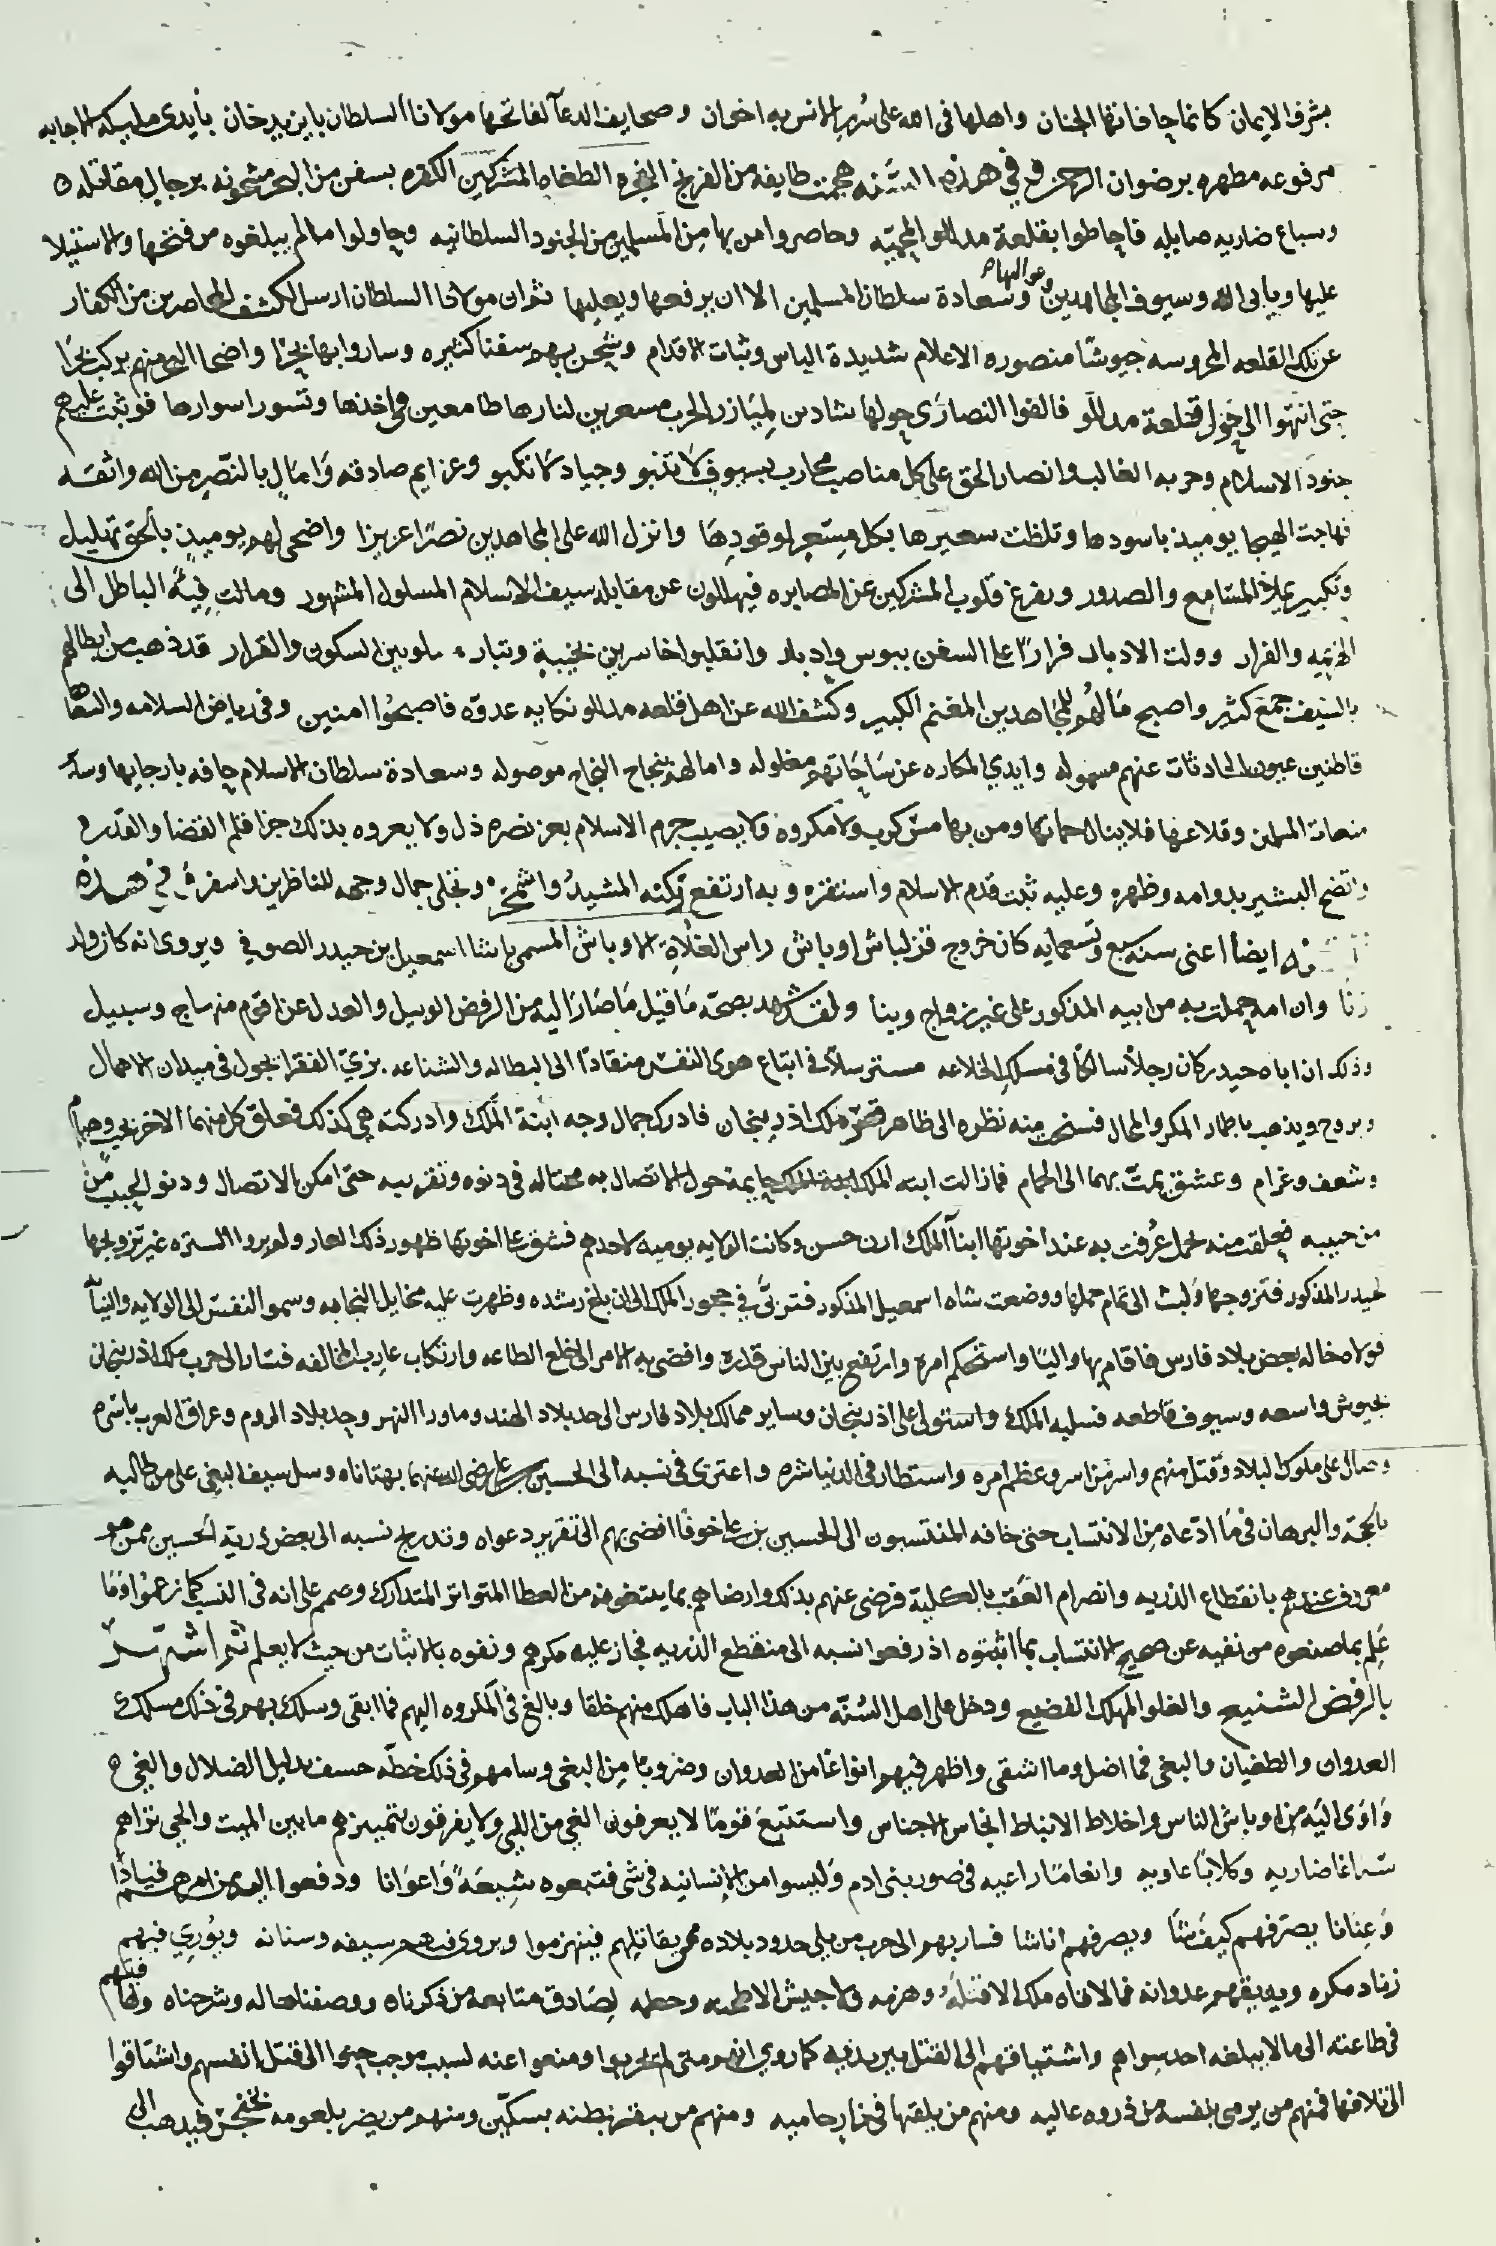 بشرف الايمان كانما چافاتها الجنان واهلها فى الله على سُرر الانس به اخوان وصحايف الدعآ لفاتحها مولانا السلطان بايزيد خان بأيدى مليكة الاجابه
مرفوعه مطهره برضوان الرحمن وفي هذه السّنه هجمت طايفه من الفرنج الفجره الطغاه المشركين الكفره بسفن من البحر مشحونه برجال مقاتله
وسباع ضاريه صايله فاحاطوا بقلعة مدللو المحميّه وحاصروا من بها مِن المسلمين من الجنود السلطانيه وحاولوا مالم يبلغوه من فتحها والاستيلا
عليها ويابى الله وسيوف المجاهدين وعواليهم وسعادة سلطان المسلمين الا ان يرفعها ويعليها ثم ان مولانا السلطان ارسل لكشف المحاصرين من الكفار
عن تلك القلعه المحروسه جيوشًا منصوره الاعلام شديدة الباس وثبات الاقدام وشحن بهم سفنا كثيره وساروا بها بحرًا واضحا البحر منهم يركب بحرًا
حتى انتهوا الى حول قلعة مدللو فالفوا النصارَى حولها شادين لميازر الحرب مسعرين لنارها طامعين فى اخذها وتسور اسوارها فوثبت عليهم
جنود الاسلام وحزبه الغالب وانصار الحق على كل مناصب محارب بسيوف لا تنبو وجياد لا تكبو وعزايم صادقه وَامالٍ بالنّصر من الله واثقه
فهاجت الهيجا يوميذ باسودها وتلظت سعيرها بكل مسّعر لوقودها وانزل الله على المجاهدين نصرًا عزيزا واضحى لهم يوميذ بألحق تهليل
وتكبير يملا المسَامع والصدور ويفرغ قلوب المشركين عن المصابره فيهللون عن مقابله سيف الاسلام المسلول المشهور ومالت فِيةُ الباطل الى
الهزيمه والفرار وولت الادبار فرارًا الى السفن ببوس وادبار وانقلبوا خاسرين بخيبةٍ وتبار السكون والقرار قد ذهب من ابطالهم
بالسّيف جمع كثير واصبح مالهُم للمجاهدين المغنم الكبير وكشف الله عن اهل قلعه مدللو نكايه عدوّه فاصبحُوا امنين وفى رياض السلامه والنعما
قاطنين عيون الحادثات عنهم مسموله وايدي المكاره عن ساحاتهم مغلوله وامالهم بنجاح النجاح موصوله وسعادة سلطان الاسلام حافه بارجايها وساير
وقلاعها فلا ينال حماتها ومن بها مسّ كرب ولا مكروه ولا يصيب حرم الاسلام بعز نصره ذل ولا يعروه بذلك جرا قلم القضا والقدر
واتضح البشير بدوامه وظهره وعليه ثبت قدم الاسلام واستقره وبه ارتفع ركنه المشيدُ واشمخرّ وتجلى جمال وجهه للناظرين واسفر وَفي هذه
ايضاً اعنى سنه سبع وتسعمايه كان خروج قزلباش اوباش راس الغُلَاة الاوباش المسمى باشا اسمعيل بن حيدر الصوفي ويروى انه كان ولد
زنًا وان امه حملت به من ابيه المذكور على غير زواج وبنا ولقد شهد بصحّه مَا قيل مَا صَارَ اليه من الرفض الوبيل والعدل عن اقوم منهاج وسبيل
وذلك ان اباه حيدر كان رجلاً سالكًا فى مسلك الخلاعه مسترسلاً فى ابتاع هوى النفس منقادًا الى البطاله والشناعه بزيّ الفقرا يجول فى ميدان الاهمال
ويروح ويذهب باطمار المكر والمحال فسنح منه نظره الى ظاهر قصر ملك اذربيجان فادرك جمال وجه ابنة الملك وادركته هي كذلك فعلق كل منهما الاخر بحبٍ وهيام
وشعف وغرام وعشق يمتّ بهما الى الحِمام فما زالت ابنه الملك حايمة حول الاتصال به محتاله فى دنوه وتقريبه حتى امكن الاتصال ودنو الحبيب من
من حبيبه فعلقت منه بحمل عُرفت به عند اخوتها ابنآ الملك ازن حسن وكانت الولايه يوميه لاحدهم فشق على اخوتها ظهور ذلك العار ولم يروا الستره غير تزويجها
لحيدر المذكور فتزوجها ولبث الى تمام حملها ووضعت شاه اسمعيل المذكور فتربّى في حجور الملك الى ان بلغ رشده وظهرت عليه مخايل النجابه وسمو النفس الى الولايه والنبآ
فولاه خاله بعض بلاد فارس فاقام بها واليًا واستحكم امره وارتفع بين الناس قدره وافضى به الامر الى خلع الطاعه وارتكاب عارب المخالفه فسَار الى حرب ملك اذربيجان
بجيوش واسعه وسيوف قاطعه فسلبه الملك واستولى على اذربيجان وساير ممالك بلاد فارس الى حد بلاد الهند وماورا النهر وحد بلاد الروم وعراق العرب باسره
وصال على ملوك البلاد وقتل منهم واسر من اسر وعظم امره واستطار فى الدنيا شره واعتزى فى نسبه الى الحسين بن على رضى الله عنهما بهتاناه وسل سيف البغى على من طالبه
بالحجّه والبرهان فى مَا ادّعاه مِن الانتساب حتى خافه المنتسبون الى الحسين بن على خوفًا افضى بهم الى تقرير دعواه وتدريج نسبه الى بعض ذرية الحسين ممن هو
معروف عندهم بانقطاع الذريه وانصرام العَقب بالكلية فرضى عنهم بذلك وارضاهم بما يستغرق من العطا المتواتر المتدارك وصمم على انه فى النسب كما زعمُوا وَمَا
عَلِم بما صنعوه من نفيه عن صحيح الانتساب بما اثبتوه اذ رفعوا نسبه الى منقطع الذريه فجاز عليه مكرهم ونفوه بالاثبات من حيث لا يعلم ثم اشتهر
بالرفض الشنيع والغلو المهلك الفضيع ودخل على اهل السُنّة من هذا الباب فاهلك منهم خلقا وبالغ فى المكروه اليهم فما ابقى وسلك بهم فى ذلك مسلك
العدوان والطغيان والبغي فما اضل وما اشقى واظهر فيهم انواعًا من العدوان وضروبًا مِن البغى وسامهم فى ذلك خطّه خسف بدليل الضلال والغي
وَاوَى اليَه من اوباش الناس واخلاط الانباط انجاس الاجناس واستتبَعَ قومًا لا يعرفون الغي من اللي ولا يفرقون بتمييزهم مابين الميت والحي تراهم
سباعًا ضاريه وكلابًا عاويه وانعامًا راعيه فى صور بنى ادم وَليسوا من الانسانيه فى شى فتبعوه شيعَةً وَاعوَانا ودفعوا اليه من امرهم قيادًا
وَعِنانا يصرّفهم كيفَ شَا ويصرفهم انا شا فسار بهم الى حرب من يلى حدود بلاده ممن يقاتلهم فينهزموا ويروى فيهم سيفه وسنانه ويُورِي فيهم
زناد مكره ويذيقهم عدوانه فما لاقاه ملك الا قتله وهزمه ولا جيش الا طحنه وحطمه لِصَادق متابعه من ذكرناه ووصفنا حاله وشرحناه قبلهم
فى طاعته الى مالا يبلغه احد سِواهم واشتياقهم الى القتل بين يديه كما روى انهم متى ومنعوا عنه لسبب موجب جنحوا الى قتل انفسهم واشتاقوا
الى تلافها فمنهم من يرمى بنفسه من ذروه عاليه ومنهم من يلقيها فى نار حاميه ومنهم من يبقر بطنه بسكّين ومنهم من يضرب بلعومه بخنجر فيذهب الى